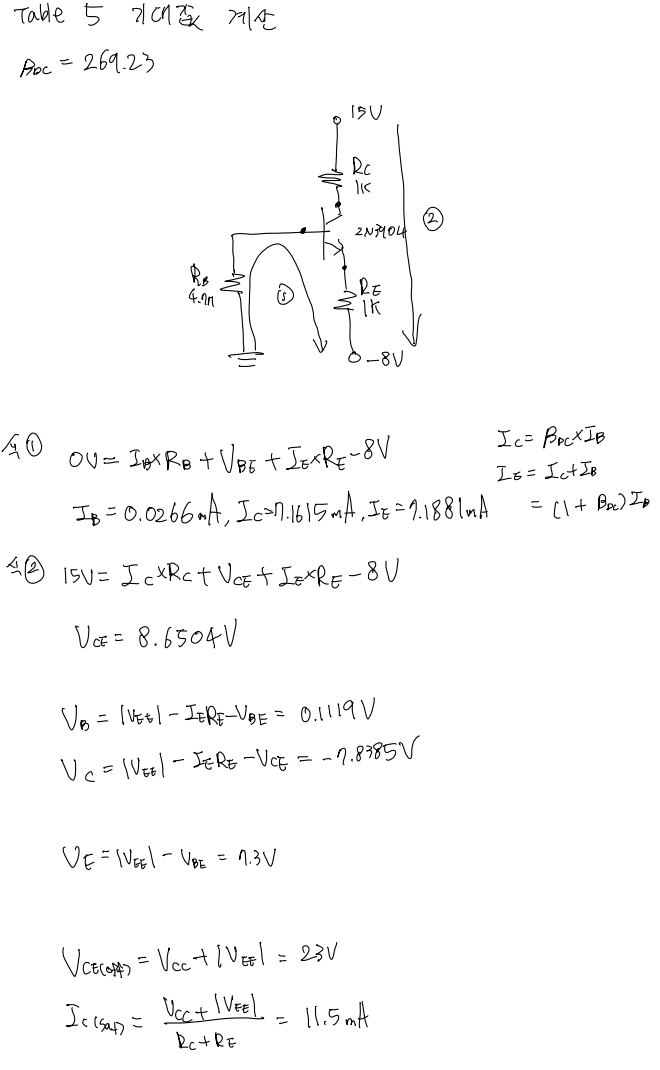 Table 5 기대값 계산
βDC = 269.23
15V
RC
1K
②
2N3904
RB
4.7K
①
RE
1K
-8V
식① 0V = IB×RB + VBE + IE×RE - 8V
IC = βDC×IB
IE = IC+IB
= (1 + βDC) IB
IB = 0.0266mA, IC=7.1615mA, IE = 7.1881mA
식② 15V = IC×RC + VCE + IE×RE - 8V
VCE = 8.6504V
VB = |VEE| - IERE - VBE = 0.1119V
VC = |VEE| - IERE - VCE = -7.8385V
VE = |VEE| - VBE = 7.3V
VCE(off) = VCC + |VEE| = 23V
IC(sat) = VCC + |VEE| / RC + RE = 11.5mA